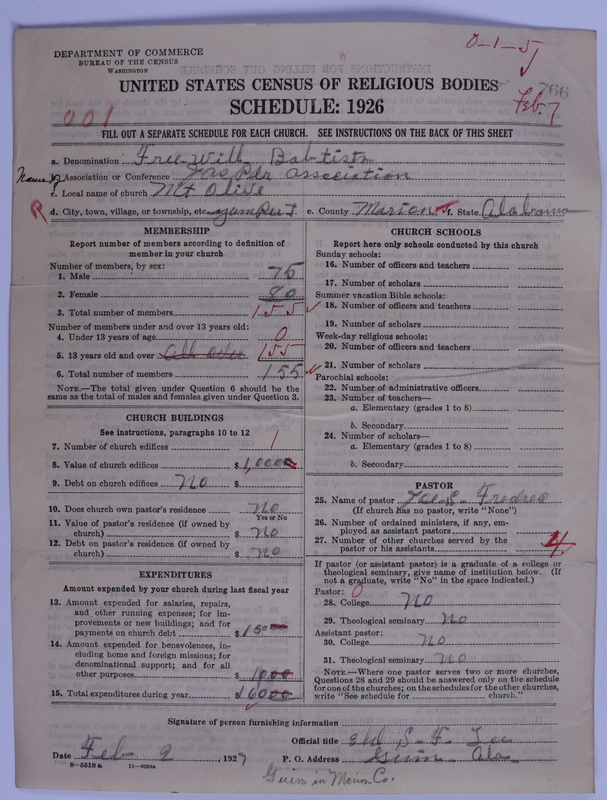 0-1-5
DEPARTMENT OF COMMERCE
BUREAU OF THE CENSUS
WASHINGTON
UNITED STATES CENSUS OF RELIGIOUS BODIES
SCHEDULE: 1926
766
Feb. 7
001
FILL OUT A SEPARATE SCHEDULE FOR EACH CHURCH. SEE INSTRUCTIONS ON THE BACK OF THIS SHEET
a. Denomination Free Will Baptists
Name of
b. Association or Conference association
c. Local name of church Mt Olive
R
d. City, town, village, or township, etc.
e. County Marion f. State Alabama
MEMBERSHIP
Report number of members according to definition of
member in your church
Number of members, by sex:
1. Male 75
2. Female 80
3. Total number of members 155
Number of members under and over 13 years old:
4. Under 13 years of age 0
5. 13 years old and over All over 155
6. Total number of members 155
NOTE.—The total given under Question 6 should be the
same as the total of males and females given under Question 3.
CHURCH BUILDINGS
See instructions, paragraphs 10 to 12
7. Number of church edifices 1
8. Value of church edifices $ 1,0000
9. Debt on church edifices NO $
10. Does church own pastor's residence NO
Yes or No
11. Value of pastor's residence (if owned by
church) $ NO
12. Debt on pastor's residence (if owned by
church) $ NO
EXPENDITURES
Amount expended by your church during last fiscal year
13. Amount expended for salaries, repairs,
and other running expenses; for im-
provements or new buildings; and for
payments on church debt $ 15000
14. Amount expended for benevolences, in-
cluding home and foreign missions; for
denominational support; and for all
other purposes $ 1000
15. Total expenditures during year $ 16000
CHURCH SCHOOLS
Report here only schools conducted by this church
Sunday schools:
16. Number of officers and teachers
17. Number of scholars
Summer vacation Bible schools:
18. Number of officers and teachers
19. Number of scholars
Week-day religious schools:
20. Number of officers and teachers
21. Number of scholars
Parochial schools:
22. Number of administrative officers
23. Number of teachers—
a. Elementary (grades 1 to 8)
b. Secondary
24. Number of scholars—
a. Elementary (grades 1 to 8)
b. Secondary
PASTOR
25. Name of pastor
(If church has no pastor, write "None")
26. Number of ordained ministers, if any, em-
ployed as assistant pastors
27. Number of other churches served by the
pastor or his assistants 4
If pastor (or assistant pastor) is a graduate of a college or
theological seminary, give name of institution below. (If
not a graduate, write "No" in the space indicated.)
Pastor: 0
28. College NO
29. Theological seminary NO
Assistant pastor:
30. College NO
31. Theological seminary NO
NOTE.—Where one pastor serves two or more churches,
Questions 28 and 29 should be answered only on the schedule
for one of the churches; on the schedules for the other churches,
write "See schedule for church."
Signature of person furnishing information
Official title Eld S. F. Lee
Date Feb 2 1927
P. O. Address Guin Ala
8-5518a 11-9054a
Guin in Marion Co.